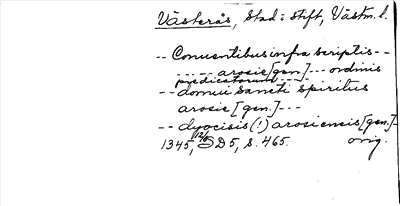 Västerås, Stad i Stift, Västm. l.
-- Conuentibus infra scriptis --
----- arosie [gen.] --- ordinis
predicatorum ----
-- domui sancti spiritus
arosie [gen.] ---
-- dyocisis (!) arosiensis [gen.] -
1345, 12/5 SD 5, s. 465. orig.